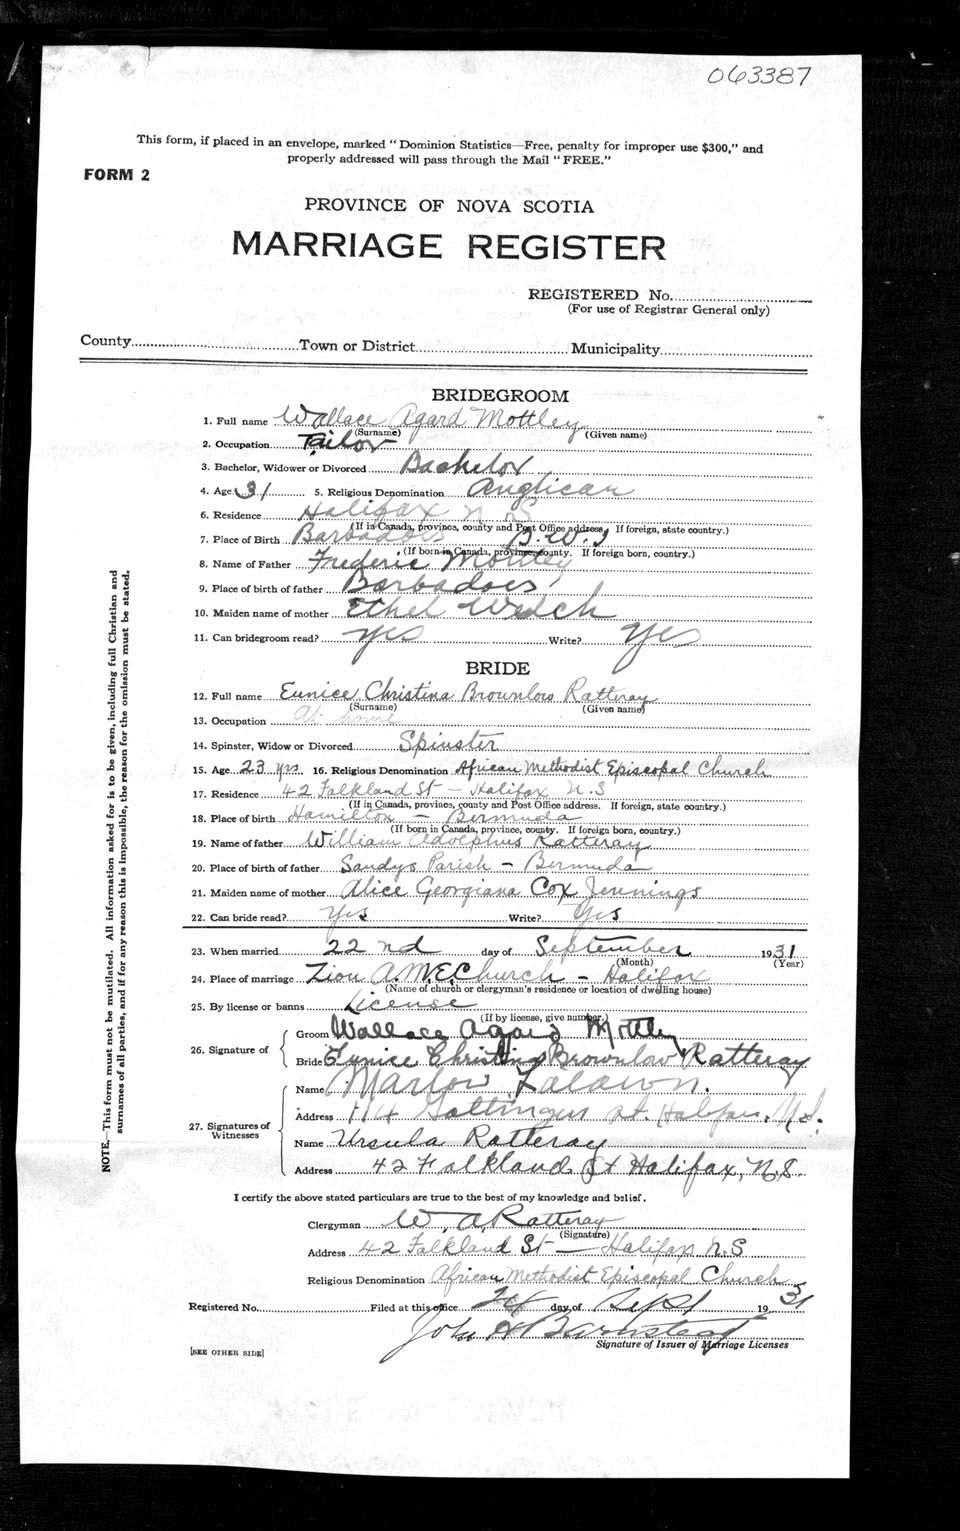 063387
This form, if placed in an envelope, marked "Dominion Statistics—Free, penalty for improper use $300," and
properly addressed will pass through the Mail "FREE."
FORM 2
PROVINCE OF NOVA SCOTIA
MARRIAGE REGISTER
REGISTERED No.
(For use of Registrar General only)
County Town or District Municipality
BRIDEGROOM
1. Full name Wallace Agard Mottley
(Surname) (Given name)
2. Occupation Tailor
3. Bachelor, Widower or Divorced Bachelor
4. Age 31 5. Religious Denomination Anglican
6. Residence Halifax N.S
(If in Canada, province, county and Post Office address. If foreign, state country.)
7. Place of Birth Barbadoes B.W.I
(If born in Canada, province, county. If foreign born, country.)
8. Name of Father Frederic Mottley
9. Place of birth of father Barbadoes
10. Maiden name of mother Ethel Welch
11. Can bridegroom read? yes Write? Yes
BRIDE
12. Full name Eunice Christina Brownlow Ratteray
(Surname) (Given name)
13. Occupation At home
14. Spinster, Widow or Divorced Spinster
15. Age 23 yrs. 16. Religious Denomination African Methodist Episcopal Church
17. Residence 42 Falkland St — Halifax N.S
(If in Canada, province, county and Post Office address. If foreign, state country.)
18. Place of birth Hamilton — Bermuda
(If born in Canada, province, county. If foreign born, country.)
19. Name of father William Adolphus Ratteray
20. Place of birth of father Sandys Parish — Bermuda
21. Maiden name of mother Alice Georgiana Cox Jennings
22. Can bride read? Yes Write? Yes
23. When married 22nd day of September 1931
(Month) (Year)
24. Place of marriage Zion A.M.E. Church — Halifax
(Name of church or clergyman's residence or location of dwelling house)
25. By license or banns License
(If by license, give number.)
26. Signature of
Groom Wallace Agard Mottley
Bride Eunice Christina Brownlow Ratteray
27. Signatures of Witnesses
Name
Address 14 Gottingen St. Halifax, N.S.
Name Ursula Ratteray
Address 42 Falkland St Halifax, N.S.
I certify the above stated particulars are true to the best of my knowledge and belief.
Clergyman W. A. Ratteray
(Signature)
Address 42 Falkland St — Halifax N.S
Religious Denomination African Methodist Episcopal Church
Registered No. Filed at this office 24 day of Sept 1931
John A Barnstead
Signature of Issuer of Marriage Licenses
[SEE OTHER SIDE]
NOTE.—This form must not be mutilated. All information asked for is to be given, including full Christian and
surnames of all parties, and if for any reason this is impossible, the reason for the omission must be stated.